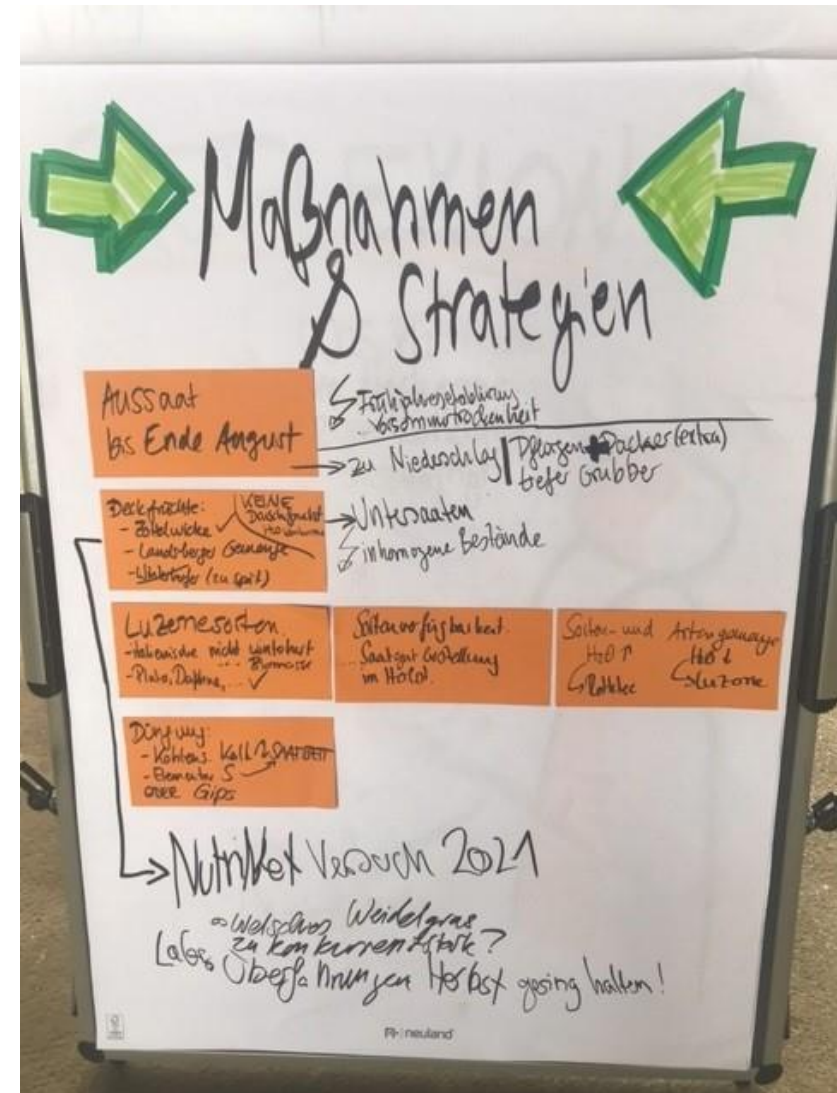 Maßnahmen
& Strategien
Aussaat
bis Ende August
Frühjahrsetablierung
Vorsommertrockenheit
→ zu Niederschlag | Pflügen Packer (extra)
tiefer Grubber
Deckfrüchte:
- Zottelwicke ✓
- Landsberger Gemenge
- Winterhafer (zu spät)
KEINE
→ Untersaaten
inhomogene Bestände
Luzernesorten
- italienische nicht winterhart
... Biomasse
- Plato, Daphne, ... ✓
Sortenverfügbarkeit.
Saatgut Bestellung
im Herbst
Sorten- und Artengemenge
H2O ↑ H2O ↓
Rotklee Luzerne
Düngung:
- Kohlens. Kalk
- Elementar S
ODER Gips
→ NutriNet Versuch 2021
Welsches Weidelgras
zu konkurrenzstark?
Überfahrungen Herbst gering halten!
neuland